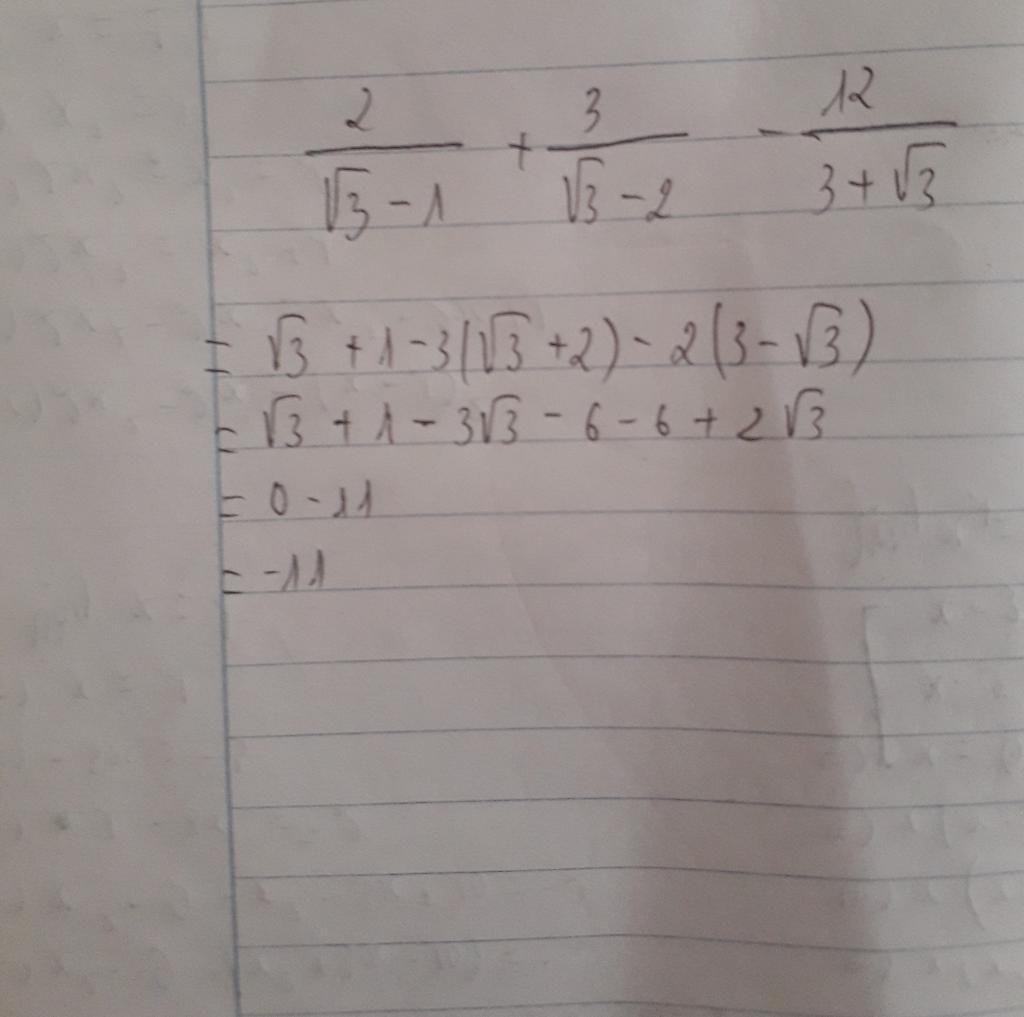 2/(√3 - 1) + 3/(√3 - 2) - 12/(3 + √3)
= √3 + 1 - 3(√3 + 2) - 2(3 - √3)
= √3 + 1 - 3√3 - 6 - 6 + 2√3
= 0 - 11
= -11